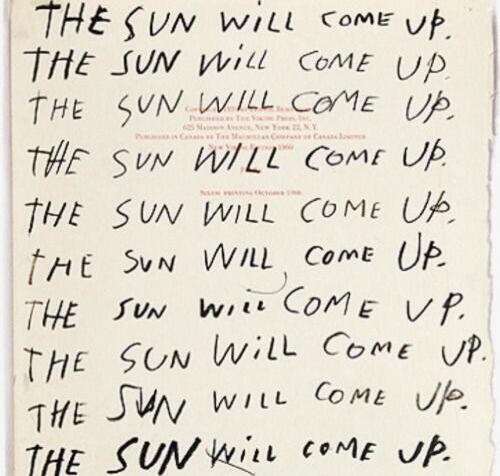 THE SUN WiLL COME UP.
THE SUN WiLL COME UP.
THE SUN WILL COME UP.
PUBLISHED BY THE VIKING PRESS, INC.
625 MADISON AVENUE, NEW YORK 22, N.Y.
PUBLISHED IN CANADA BY THE MACMILLAN COMPANY OF CANADA LIMITED
THE SUN WILL COME UP.
SIXTH PRINTING OCTOBER
THE SUN WILL COME UP.
THE SUN WILL COME UP.
THE SUN WiLL COME UP.
THE SUN WiLL COME UP.
THE SUN WILL COME UP.
THE SUN WiLL COME UP.